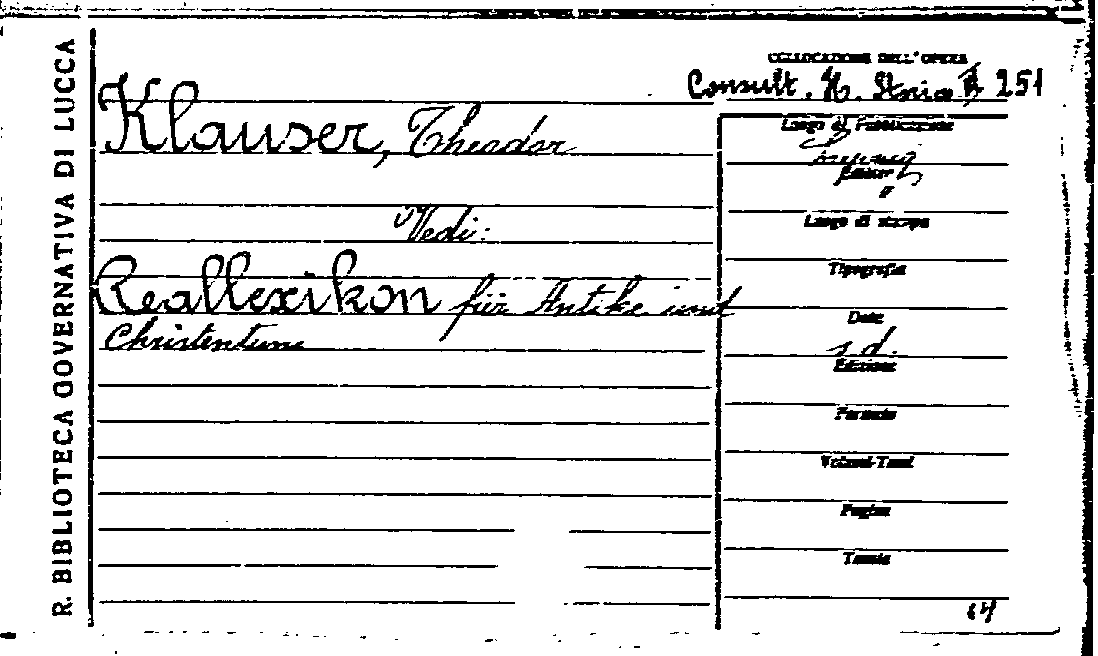 R. BIBLIOTECA GOVERNATIVA DI LUCCA
COLLOCAZIONE DELL'OPERA
Consult. St. Storica 251
Klauser, Theodor
Luogo di Pubblicazione
Editore
Vedi:
Luogo di stampa
Reallexikon für Antike und
Christentum
Tipografia
Data
s.d.
Edizione
Formato
Volumi-Tomi
Pagine
Tavole
64